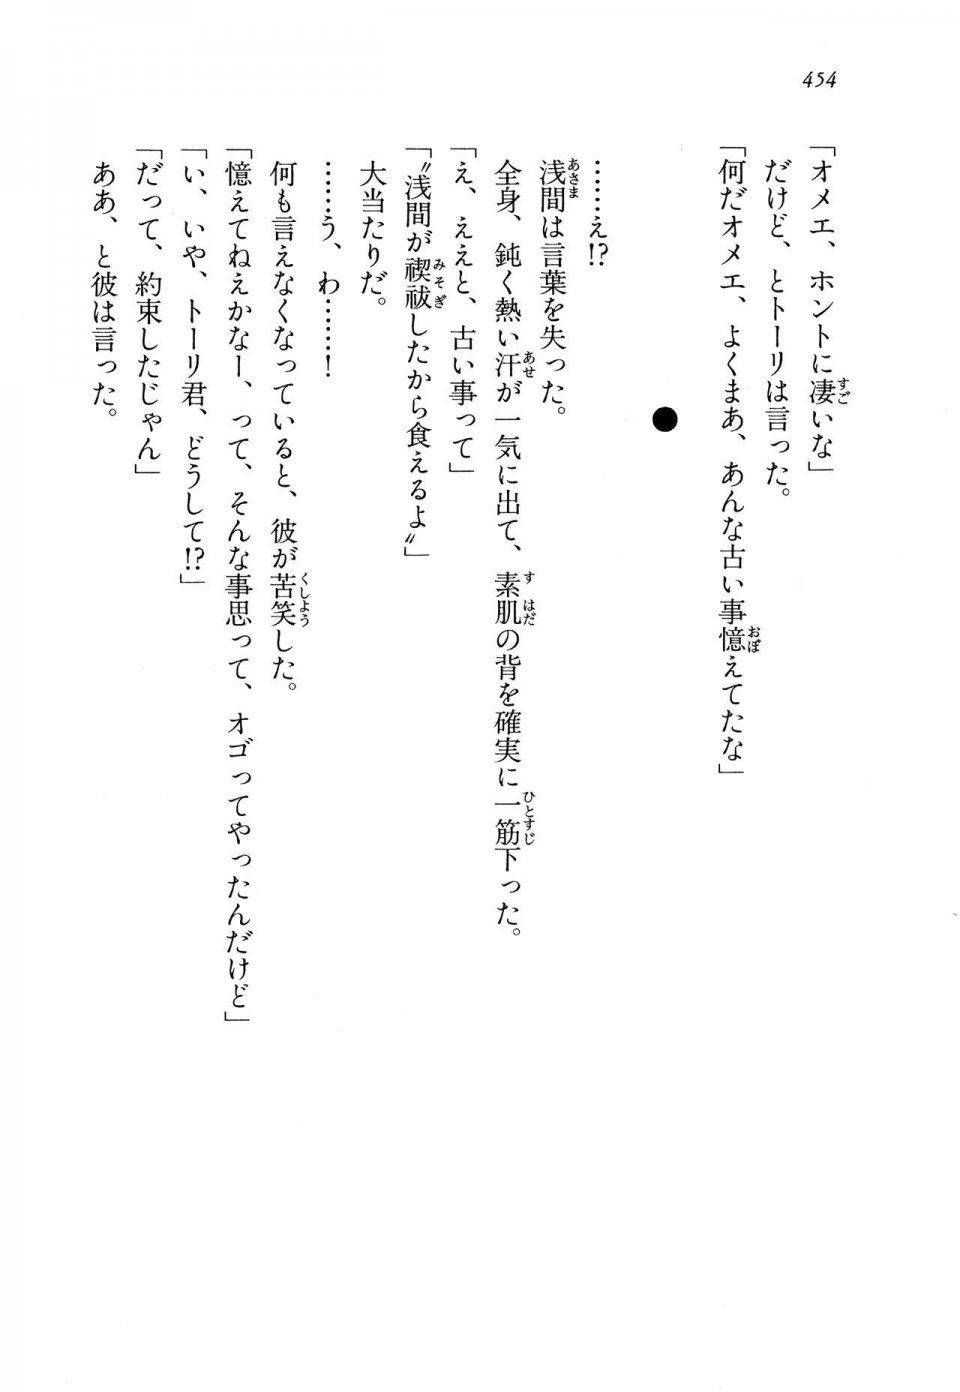 454
「オメエ、ホントに凄いな」
だけど、とトーリは言った。
「何だオメエ、よくまあ、あんな古い事憶えてたな」
●
……え!?
浅間は言葉を失った。
全身、鈍く熱い汗が一気に出て、素肌の背を確実に一筋下った。
「え、ええと、古い事って」
「〝浅間が禊祓したから食えるよ〟」
大当たりだ。
……う、わ……！
何も言えなくなっていると、彼が苦笑した。
「憶えてねえかなー、って、そんな事思って、オゴってやったんだけど」
「い、いや、トーリ君、どうして!?」
「だって、約束したじゃん」
ああ、と彼は言った。